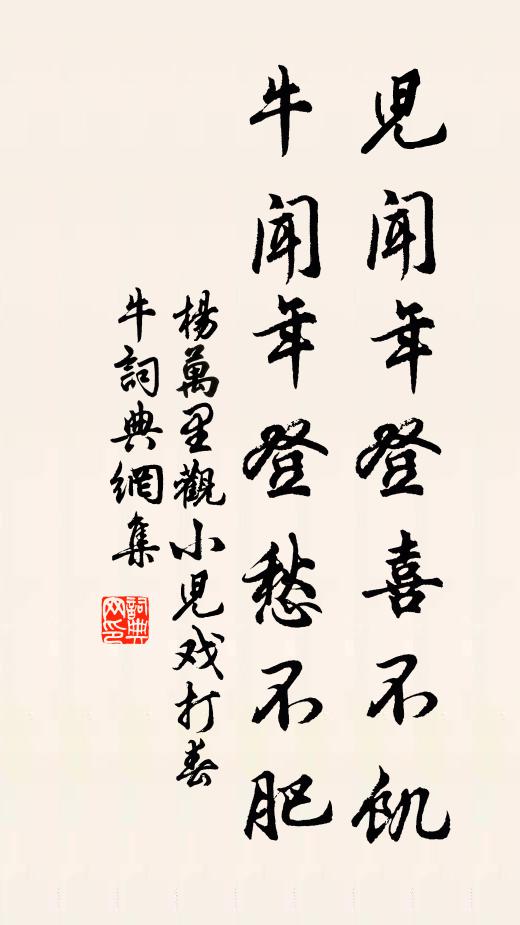 児聞年登喜不飢
牛聞年登愁不肥
楊萬里觀小児戏打春
牛詞典網集
詞典
网印